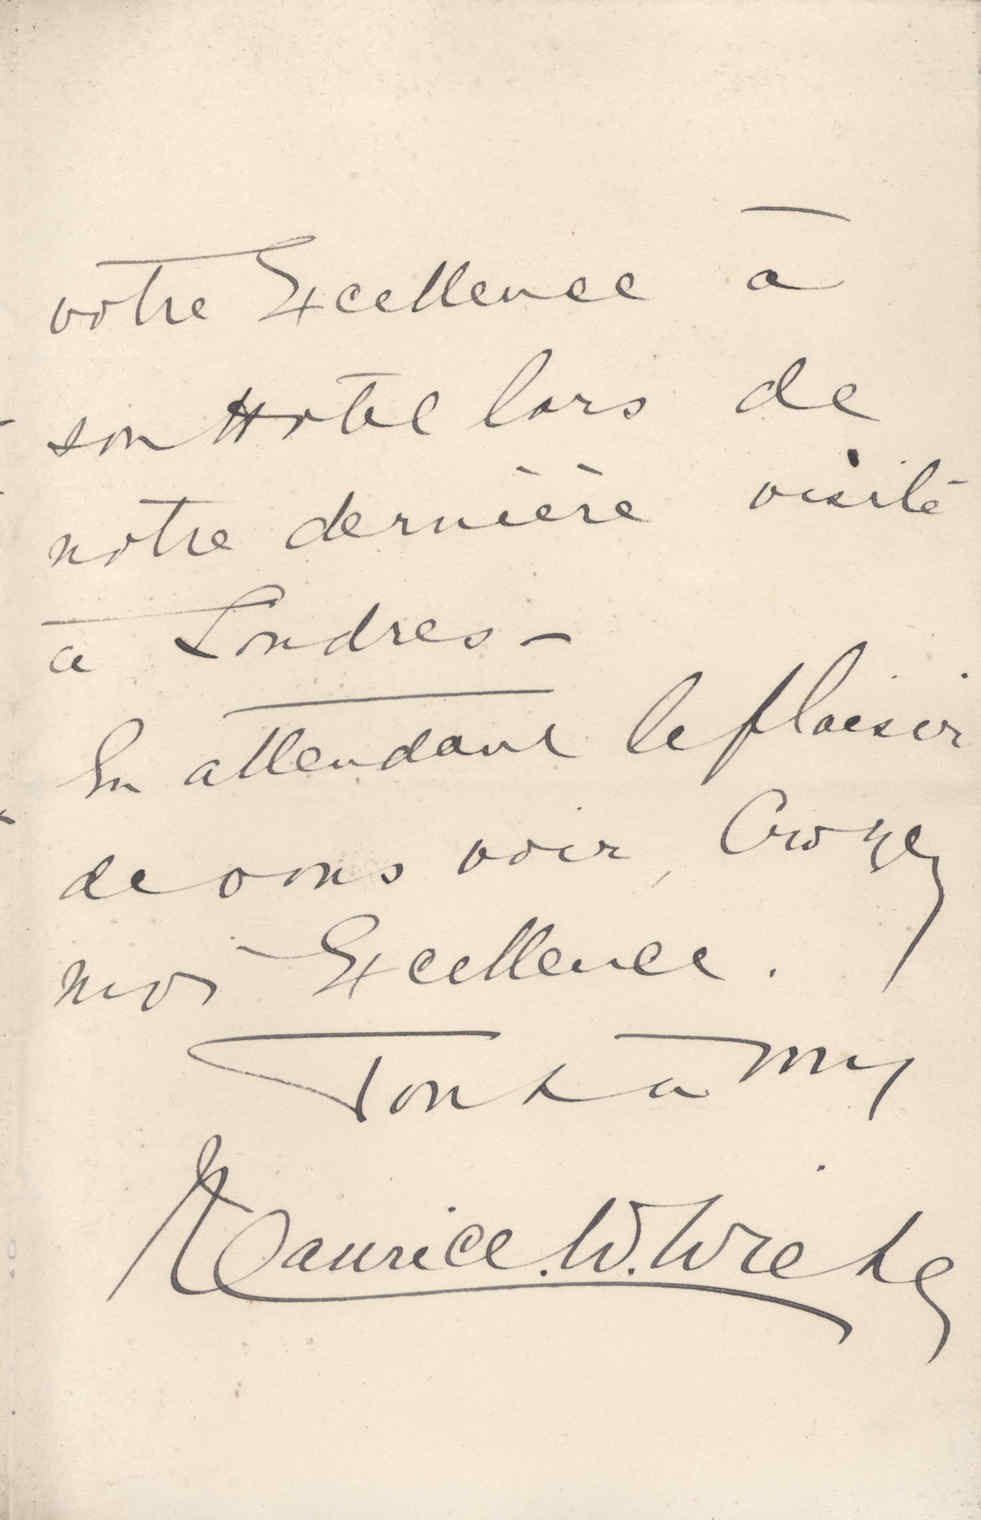 votre Excellence à
son Hotel lors de
notre dernière visite
à Londres -
En attendant le plaisir
de vous voir, Croyez
moi Excellence.
Tout a Vous
Maurice. W. Wiehe